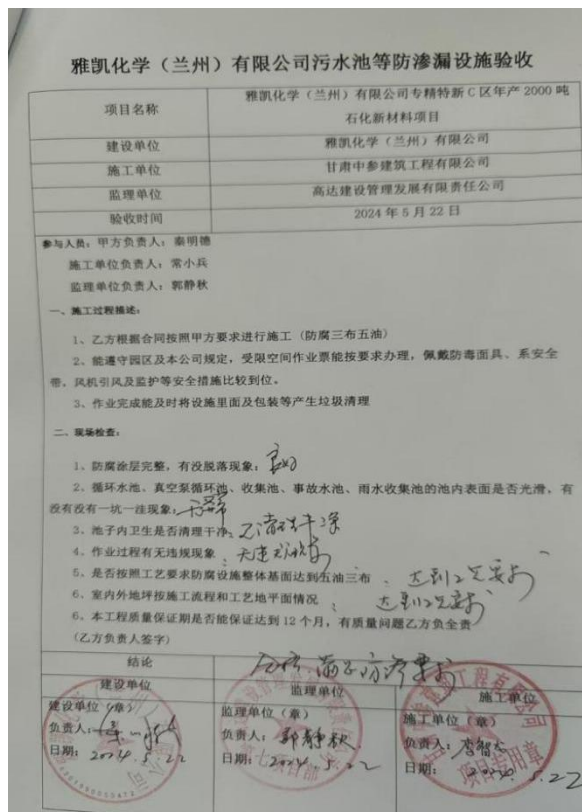 雅凯化学（兰州）有限公司污水池等防渗漏设施验收
项目名称
雅凯化学（兰州）有限公司专精特新C区年产2000吨
石化新材料项目
建设单位
雅凯化学（兰州）有限公司
施工单位
甘肃中参建筑工程有限公司
监理单位
高达建设管理发展有限责任公司
验收时间
2024年5月22日
参与人员：甲方负责人：秦明德
施工单位负责人：常小兵
监理单位负责人：郭静秋
一、施工过程描述：
1、乙方根据合同按照甲方要求进行施工（防腐三布五油）
2、能遵守园区及本公司规定，受限空间作业票能按要求办理，佩戴防毒面具、系安全
带，风机引风及监护等安全措施比较到位。
3、作业完成能及时将设施里面及包装等产生垃圾清理
二、现场检查：
1、防腐涂层完整，有没脱落现象：良好
2、循环水池、真空泵循环池、收集池、事故水池、雨水收集池的池内表面是否光滑、有
没有没有一坑一洼现象：
3、池子内卫生是否清理干净：已清理干净
4、作业过程有无违规现象：
5、是否按照工艺要求防腐设施整体基面达到五油三布：达到工艺要求
6、室内外地坪按施工流程和工艺地平面情况：达到工艺要求
6、本工程质量保证期是否能保证达到12个月，有质量问题乙方负全责
（乙方负责人签字）
结论
合格 满足防渗要求
建设单位
监理单位
施工单位
建设单位（章）
监理单位（章）
施工单位（章）
负责人：
负责人：郭静秋
负责人：
日期：2024.5.22
日期：2024.5.22
日期：2024.5.22
第七项目部
项目专用章